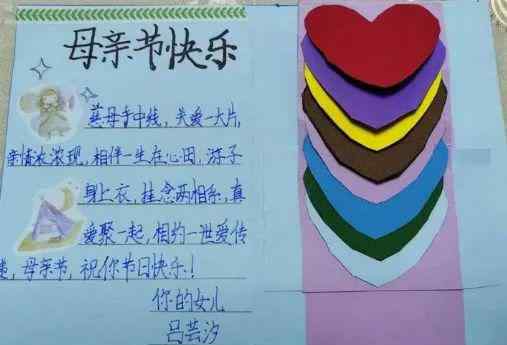 母亲节快乐
慈母手中线，关爱一大片，
亲情浓浓现，相伴一生在心田，游子
身上衣，挂念两相系，真
爱聚一起，相约一世爱传
递，母亲节，祝你节日快乐！
你的女儿
吕芸汐